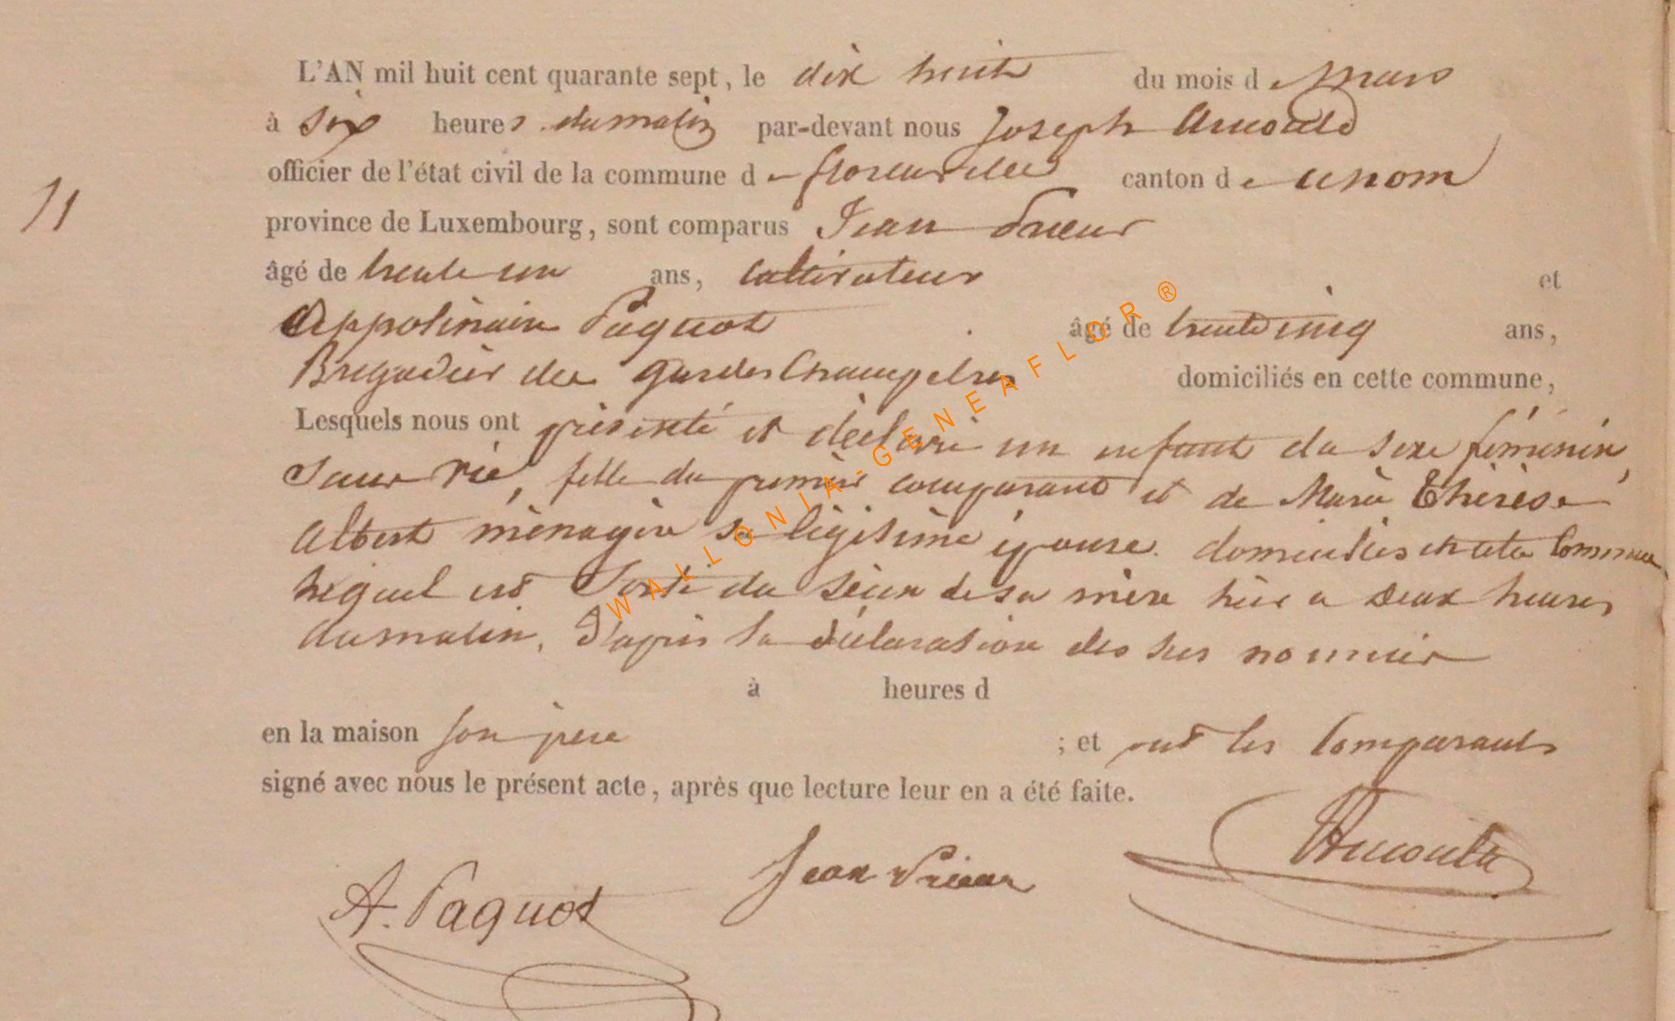 L'AN mil huit cent quarante sept, le dix huit du mois de Mars
à six heures du matin par-devant nous Joseph Arnould
officier de l'état civil de la commune de florenville canton de
province de Luxembourg, sont comparus Jean Prieur
11
âgé de trente un ans, cultivateur et
Appolinaire Paquot âgé de trente cinq ans,
Brigadier des gardes Champetres domiciliés en cette commune,
Lesquels nous ont présenté et déclaré un enfant du sexe féminin,
sans vie, fille du premier comparant et de Marie Thérèse
Albert ménagère sa légitime épouse domiciliés en cette Commune
lequel est sorti du sein de sa mère hier a deux heures
du matin, d'après la déclaration des sus nommés
à heures d
en la maison son père ; et ont les Comparants
signé avec nous le présent acte, après que lecture leur en a été faite.
A. Paquot Jean Prieur Arnould
WALLONIA-GENEAFLOR®